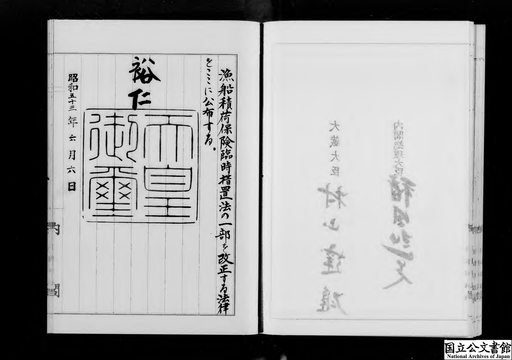 漁船積荷保険臨時措置法の一部を改正する法律
をここに公布する。
裕仁
天皇
御璽
昭和五十三年六月六日
内閣
内閣総理大臣
大蔵大臣 村山達雄
国立公文書館
National Archives of Japan